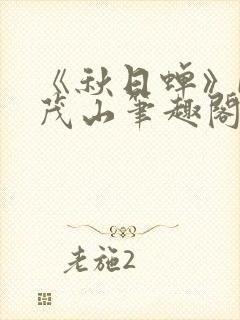 《秋日蝉》
茂山筆趣閣
老施2